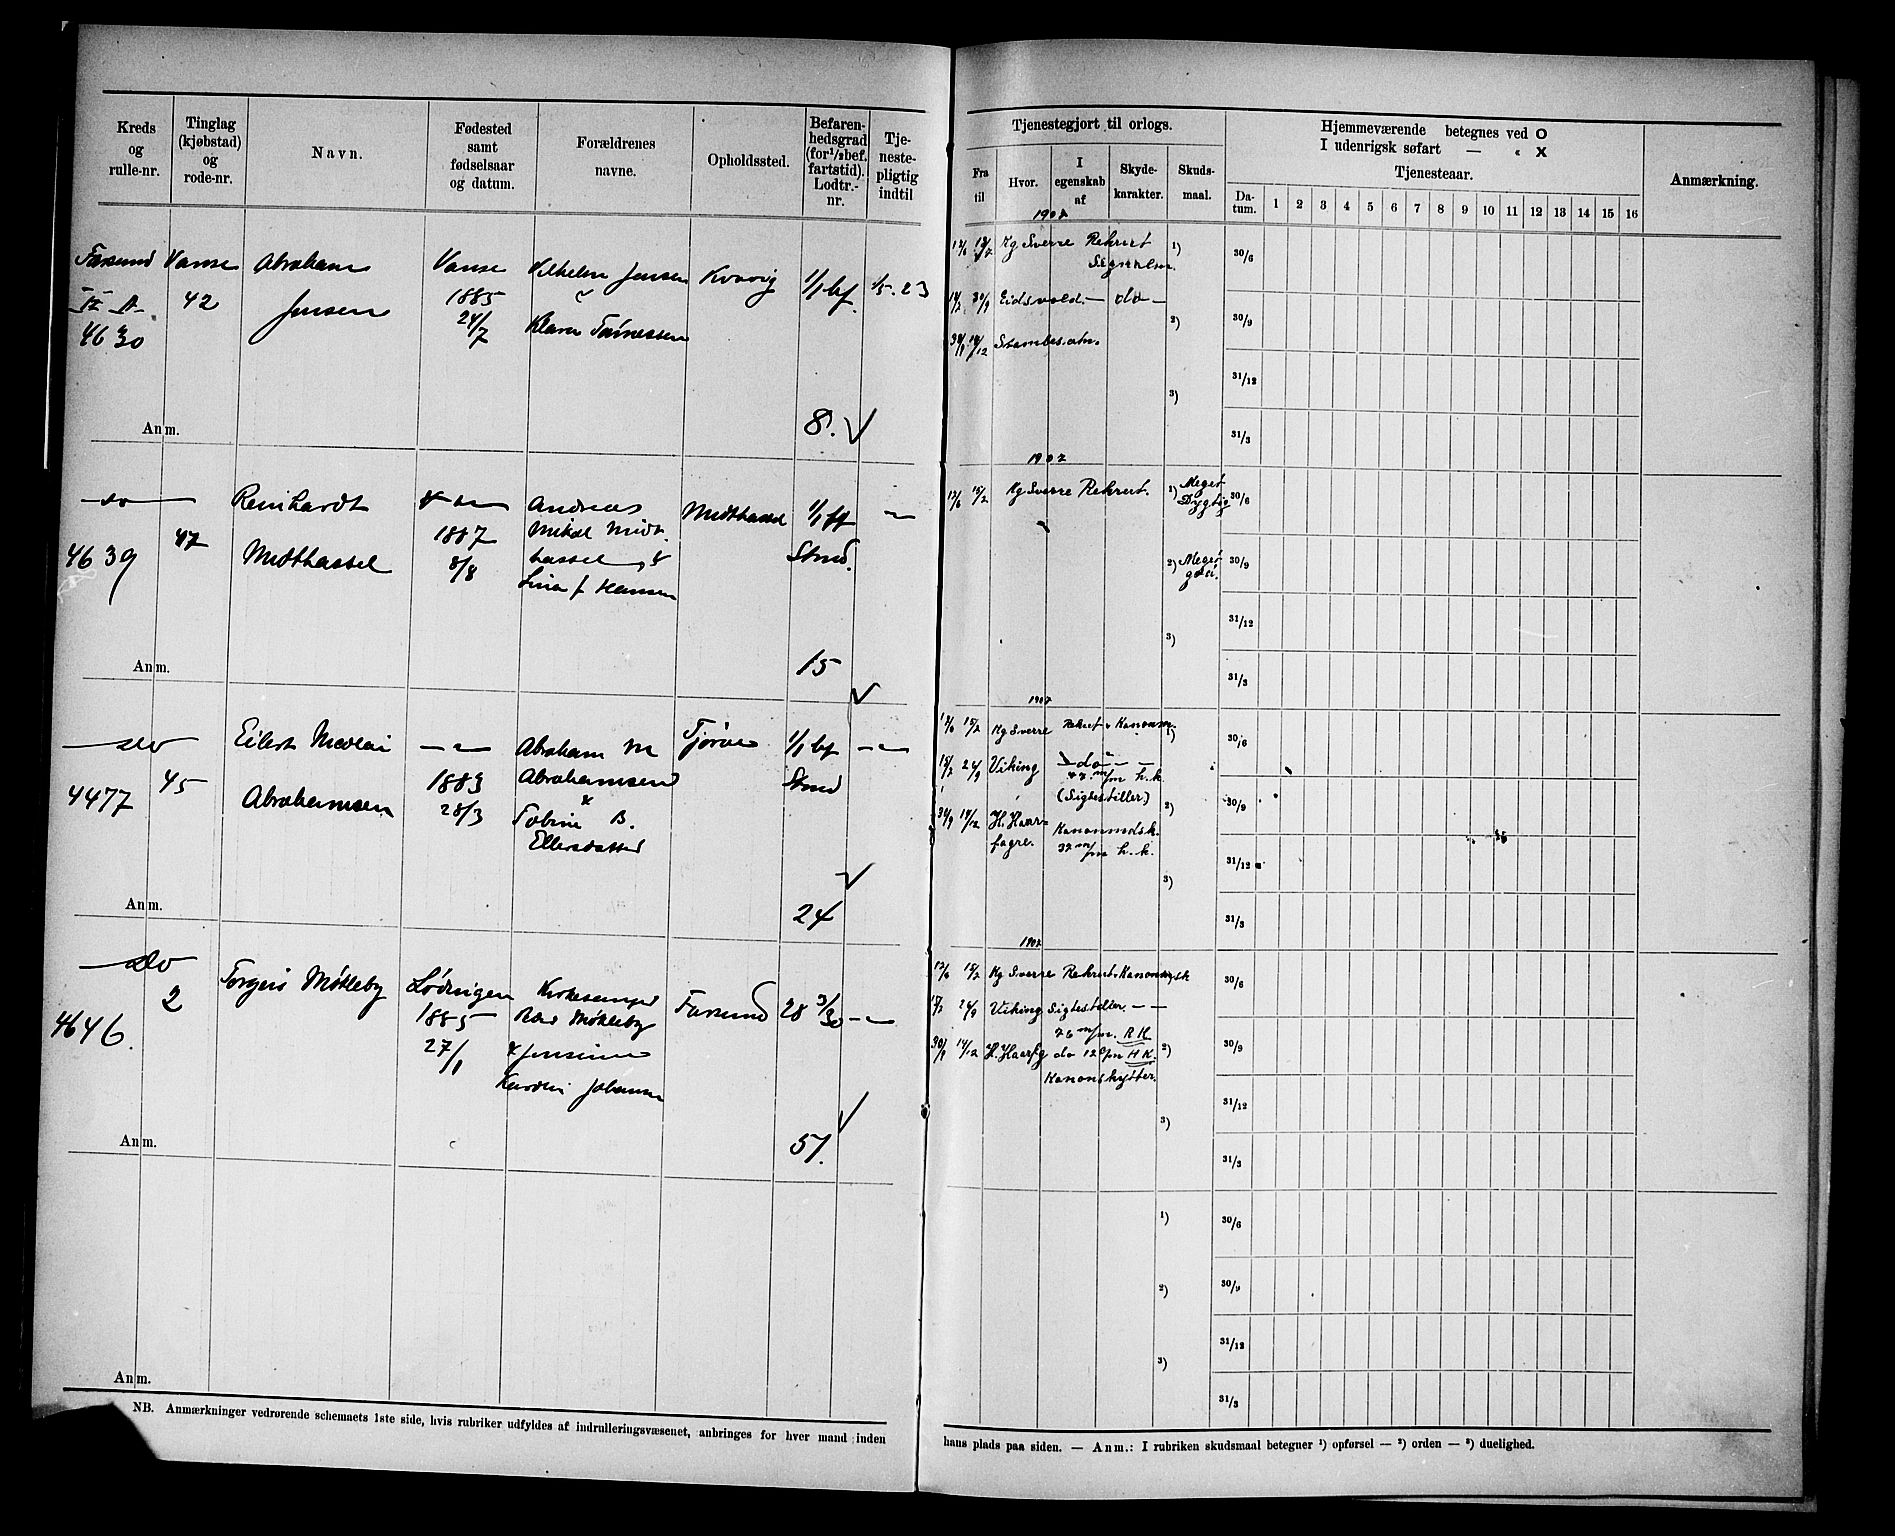 Kreds og rulle-nr.
Tinglag (kjøbstad) og rode-nr.
Navn.
Fødested samt fødselsaar og datum.
Forældrenes navne.
Opholdssted.
Befaren-hedsgrad (for 1/2 bef. fartstid). Lodtr.-nr.
Tje-neste-pligtig indtil
Farsund Vanse Abraham Vanse Vilhelm Jensen Kvavig 1/1 bf. 1/5. 23
42 Jensen 1885
24/7 Klara Tønnessen
4630
Anm. 8.
—do— Reinhardt Andreas Midthassel 1/1 ff —
47 1887 Mikal Midt-
4639 Midthassel 8/8 hassel &
Lina f Hansen
Anm. 15
—do— Eilert Nicolai — " — Abraham M Tjørve 1/1 bf — " —
45 1883 Abrahamsen
4477 Abrahamsen 28/3 &
Tobine B.
Anm. 24
—do— Torgeis Møkleby Lødingen Kirkesanger Farsund 28 3/30 — " —
2 1885 Møkleby
4646. 27/1 &
Anm. 51.
Anm.
NB. Anmærkninger vedrørende schemaets 1ste side, hvis rubriker udfyldes af indrulleringsvæsenet, anbringes for hver mand inden
Tjenestegjort til orlogs.
Hjemmeværende betegnes ved O
I udenrigsk søfart — " X
Fra til
Hvor.
I egenskab af
Skyde-karakter.
Skuds-maal.
Tjenesteaar.
Da-tum. 1 2 3 4 5 6 7 8 9 10 11 12 13 14 15 16
Anmærkning.
1907
12/6 Kg Sverre Rekrut 1) 30/6
Signalm.
Eidsvold. — do — 30/9
2)
Stambes.atn.
31/12
3)
31/3
1907
12/6 15/7 Kg Sverre Rekrut. 1) Meget Dygtig 30/6
2) Meget god. 30/9
31/12
3)
31/3
1907
12/6 15/7 Kg Sverre Rekrut & Kanonm. 1) 30/6
15/7 24/9 Viking — do — —
47 m/m h.k.
(Sigtestiller) 2) 30/9
30/9 14/12 H. Haar-fagre. Kanonmdsk.
37 m/m h.k. 31/12
3)
31/3
1907
12/6 15/7 Kg Sverre Rekrut & Kanonmdsk 30/6
15/7 24/9 Viking Sigtestiller — —
76 m/m. R K
30/9 14/12 H. Haarfg do 12 c/m H K. 2) 30/9
Kanonskytter.
31/12
3)
31/3
1) 30/6
2) 30/9
31/12
3)
31/3
hans plads paa siden. — Anm.: I rubriken skudsmaal betegner 1) opførsel — 2) orden — 3) duelighed.